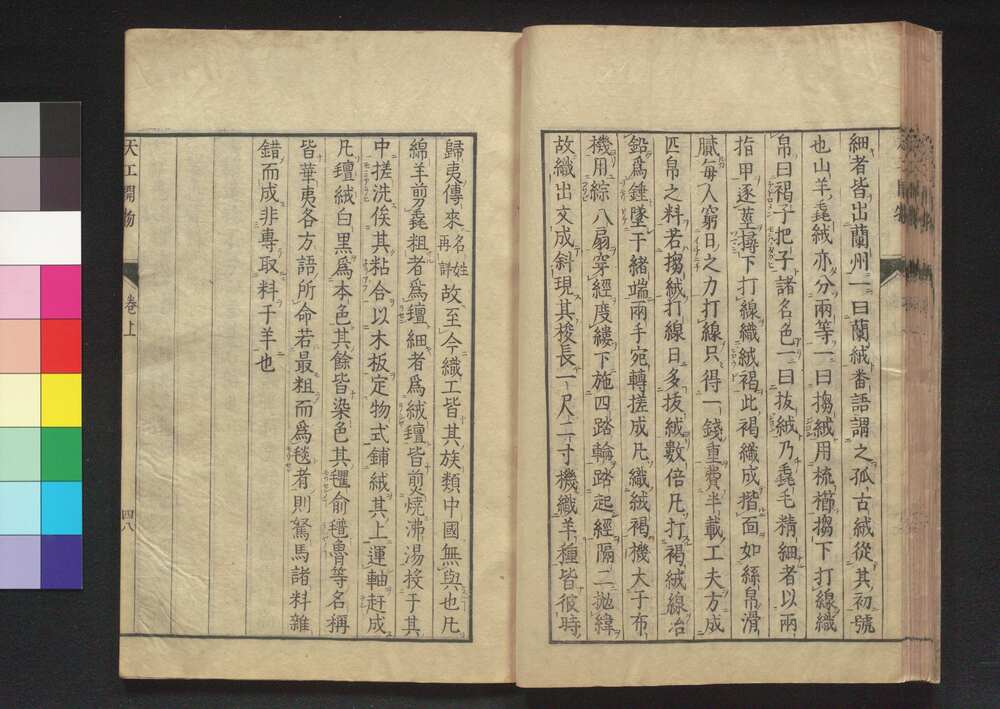 細者皆出蘭州一曰蘭絨番語謂之孤古絨從其初號
也山羊毳絨亦分兩等一曰搊絨用梳櫛搊下打線織
帛曰褐子把子諸名色一曰拔絨乃毳毛精細者以兩
指甲逐莖撏下打線織絨褐此褐織成揩面如絲帛滑
膩每人窮日之力打線只得一錢重費半載工夫方成
匹帛之料若搊絨打線日多拔絨數倍凡打褐絨線冶
鉛為錘墜于緒端兩手宛轉搓成凡織絨褐機大于布
機用綜八扇穿經度縷下施四踏輪踏起經隔二拋緯
故織出文成斜現其梭長一尺二寸機織羊種皆彼時
歸夷傳來名姓再詳故至今織工皆其族類中國無與也凡
綿羊剪毳粗者為氊細者為絨氊皆煎燒沸湯投于其
中搓洗俟其粘合以木板定物式鋪絨其上運軸赶成
凡氊絨白黑為本色其餘皆染色其氍俞氆魯等名稱
皆華夷各方語所命若最粗而為毯者則駑馬諸料雜
錯而成非專取料于羊也
天工開物
卷上
四八